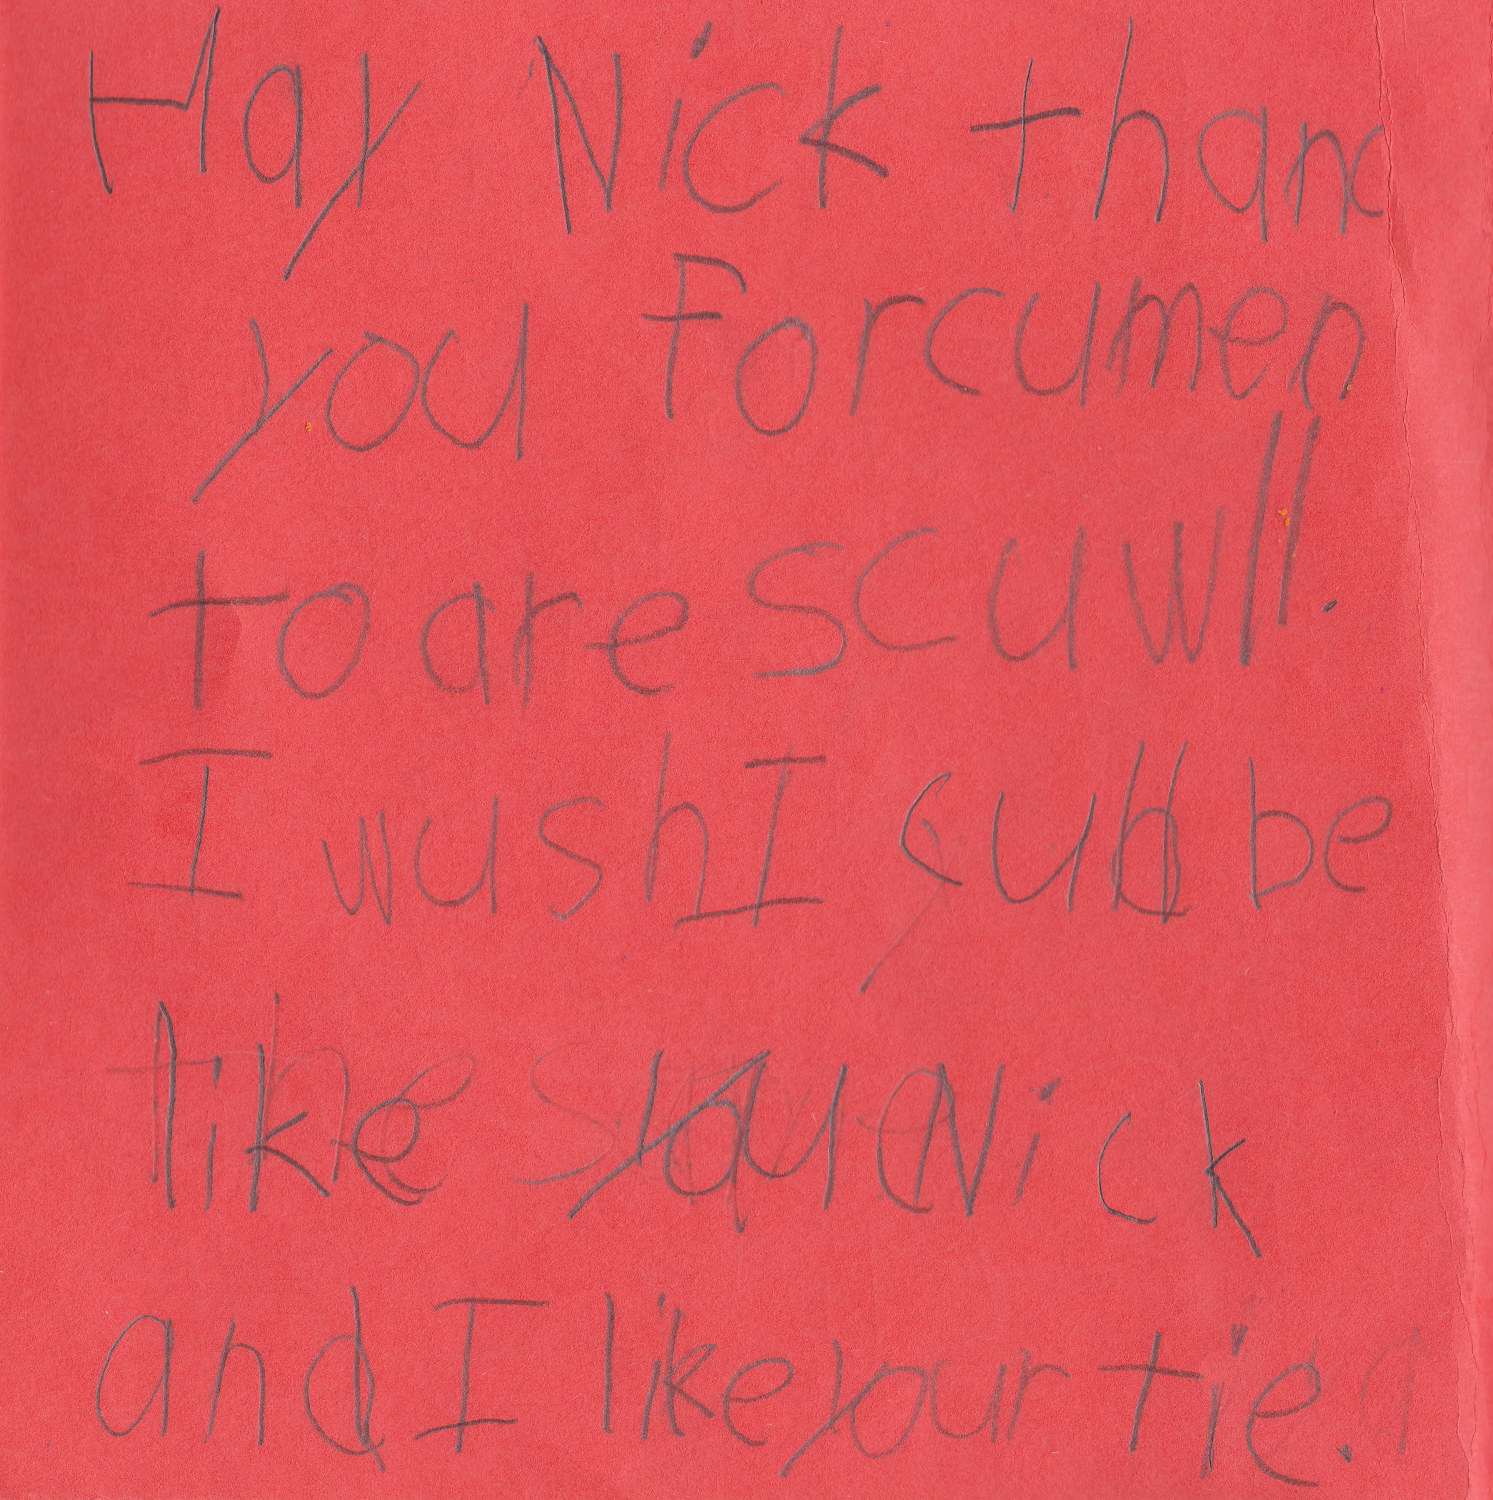 Hay Nick thanc
you Forcumen
to are scuwll.
I wush I cudd be
like you Nick
and I like your tie.